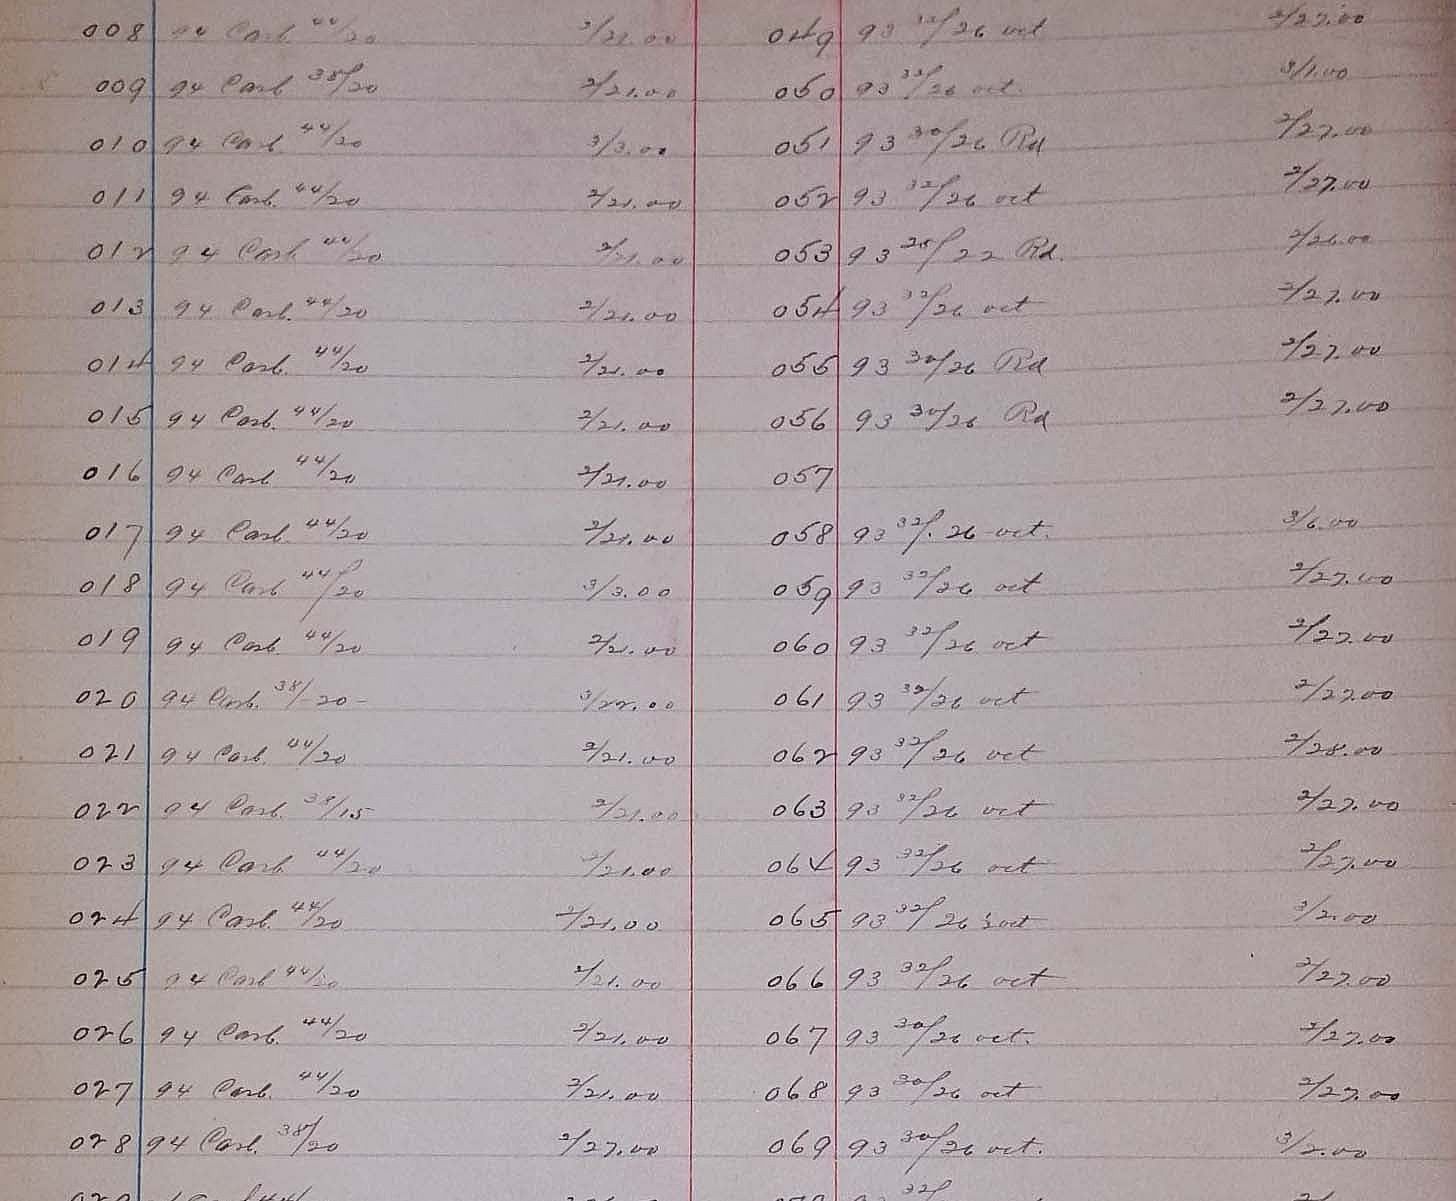 008 94 Carb. 44/20 2/21.00 049 93 32/26 oct 2/27.00
009 94 Carb 38/20 2/21.00 050 93 32/26 oct. 3/1.00
010 94 Carb 44/20 3/3.00 051 93 30/26 Rd 2/27.00
011 94 Carb. 44/20 2/21.00 052 93 32/26 oct 2/27.00
012 94 Carb 44/20 2/21.00 053 93 28/22 Rd. 2/26.00
013 94 Carb. 44/20 2/21.00 054 93 32/26 oct 2/27.00
014 94 Carb. 44/20 2/21.00 055 93 30/26 Rd 2/27.00
015 94 Carb. 44/20 2/21.00 056 93 30/26 Rd 2/27.00
016 94 Carb 44/20 2/21.00 057
017 94 Carb. 44/20 2/21.00 058 93 32/26 oct. 3/6.00
018 94 Carb 44/20 3/3.00 059 93 32/26 oct 2/27.00
019 94 Carb. 44/20 2/21.00 060 93 32/26 oct 2/27.00
020 94 Carb. 38/20 - 3/22.00 061 93 32/26 oct 2/27.00
021 94 Carb. 44/20 2/21.00 062 93 32/26 oct 2/28.00
022 94 Carb. 38/15 2/21.00 063 93 32/26 oct 2/27.00
023 94 Carb. 44/20 2/21.00 064 93 32/26 oct 2/27.00
024 94 Carb. 44/20 2/21.00 065 93 32/26 oct 3/2.00
025 94 Carb 44/20 2/21.00 066 93 32/26 oct 2/27.00
026 94 Carb. 44/20 2/21.00 067 93 30/26 oct. 2/27.00
027 94 Carb. 44/20 2/21.00 068 93 30/26 oct 2/27.00
028 94 Carb. 38/20 2/27.00 069 93 30/26 oct. 3/2.00